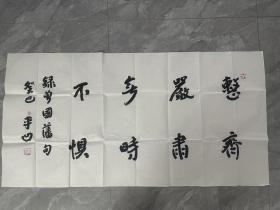 整齊
嚴肅
無時
不懼
錄曾國藩句
癸巳 平凹